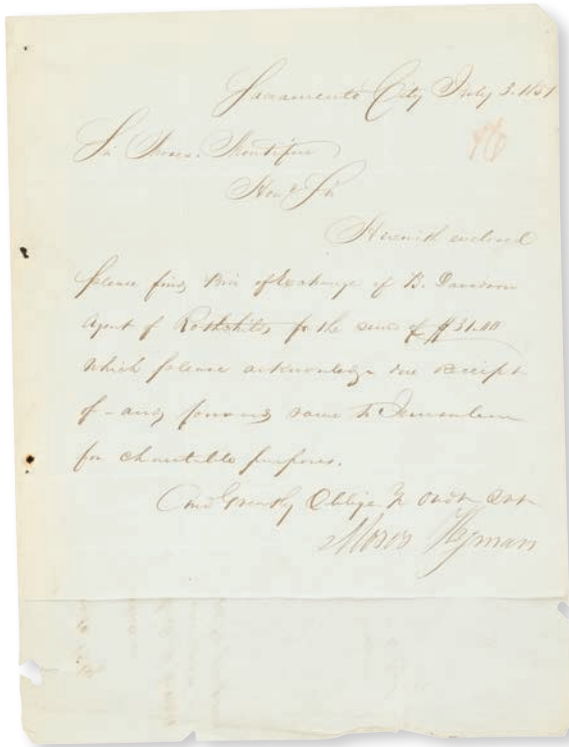 Sacramento City July 3. 1851
76
Sir Moses Montifire
Hond Sir
Herewith enclosed
please find Bill of Exchange of B. Davidson
Agent of Rothchilds for the sum of 31.00
Which please acknowledge due Receipt
of – and forward same to Jerusalem
for charitable purposes.
And Greatly Oblige Yr Obdt Svt
Moses Hyman